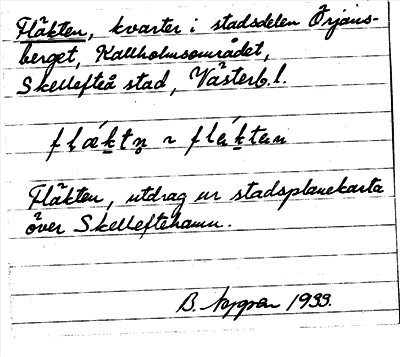 Fläkten, kvarter i stadsdelen Örjans-
berget, Kallholmsområdet,
Skellefteå stad, Västerb. l.
flæ´ktn̥ ~ flä´kten
Fläkten, utdrag ur stadsplanekarta
över Skelleftehamn.
B. 1933.